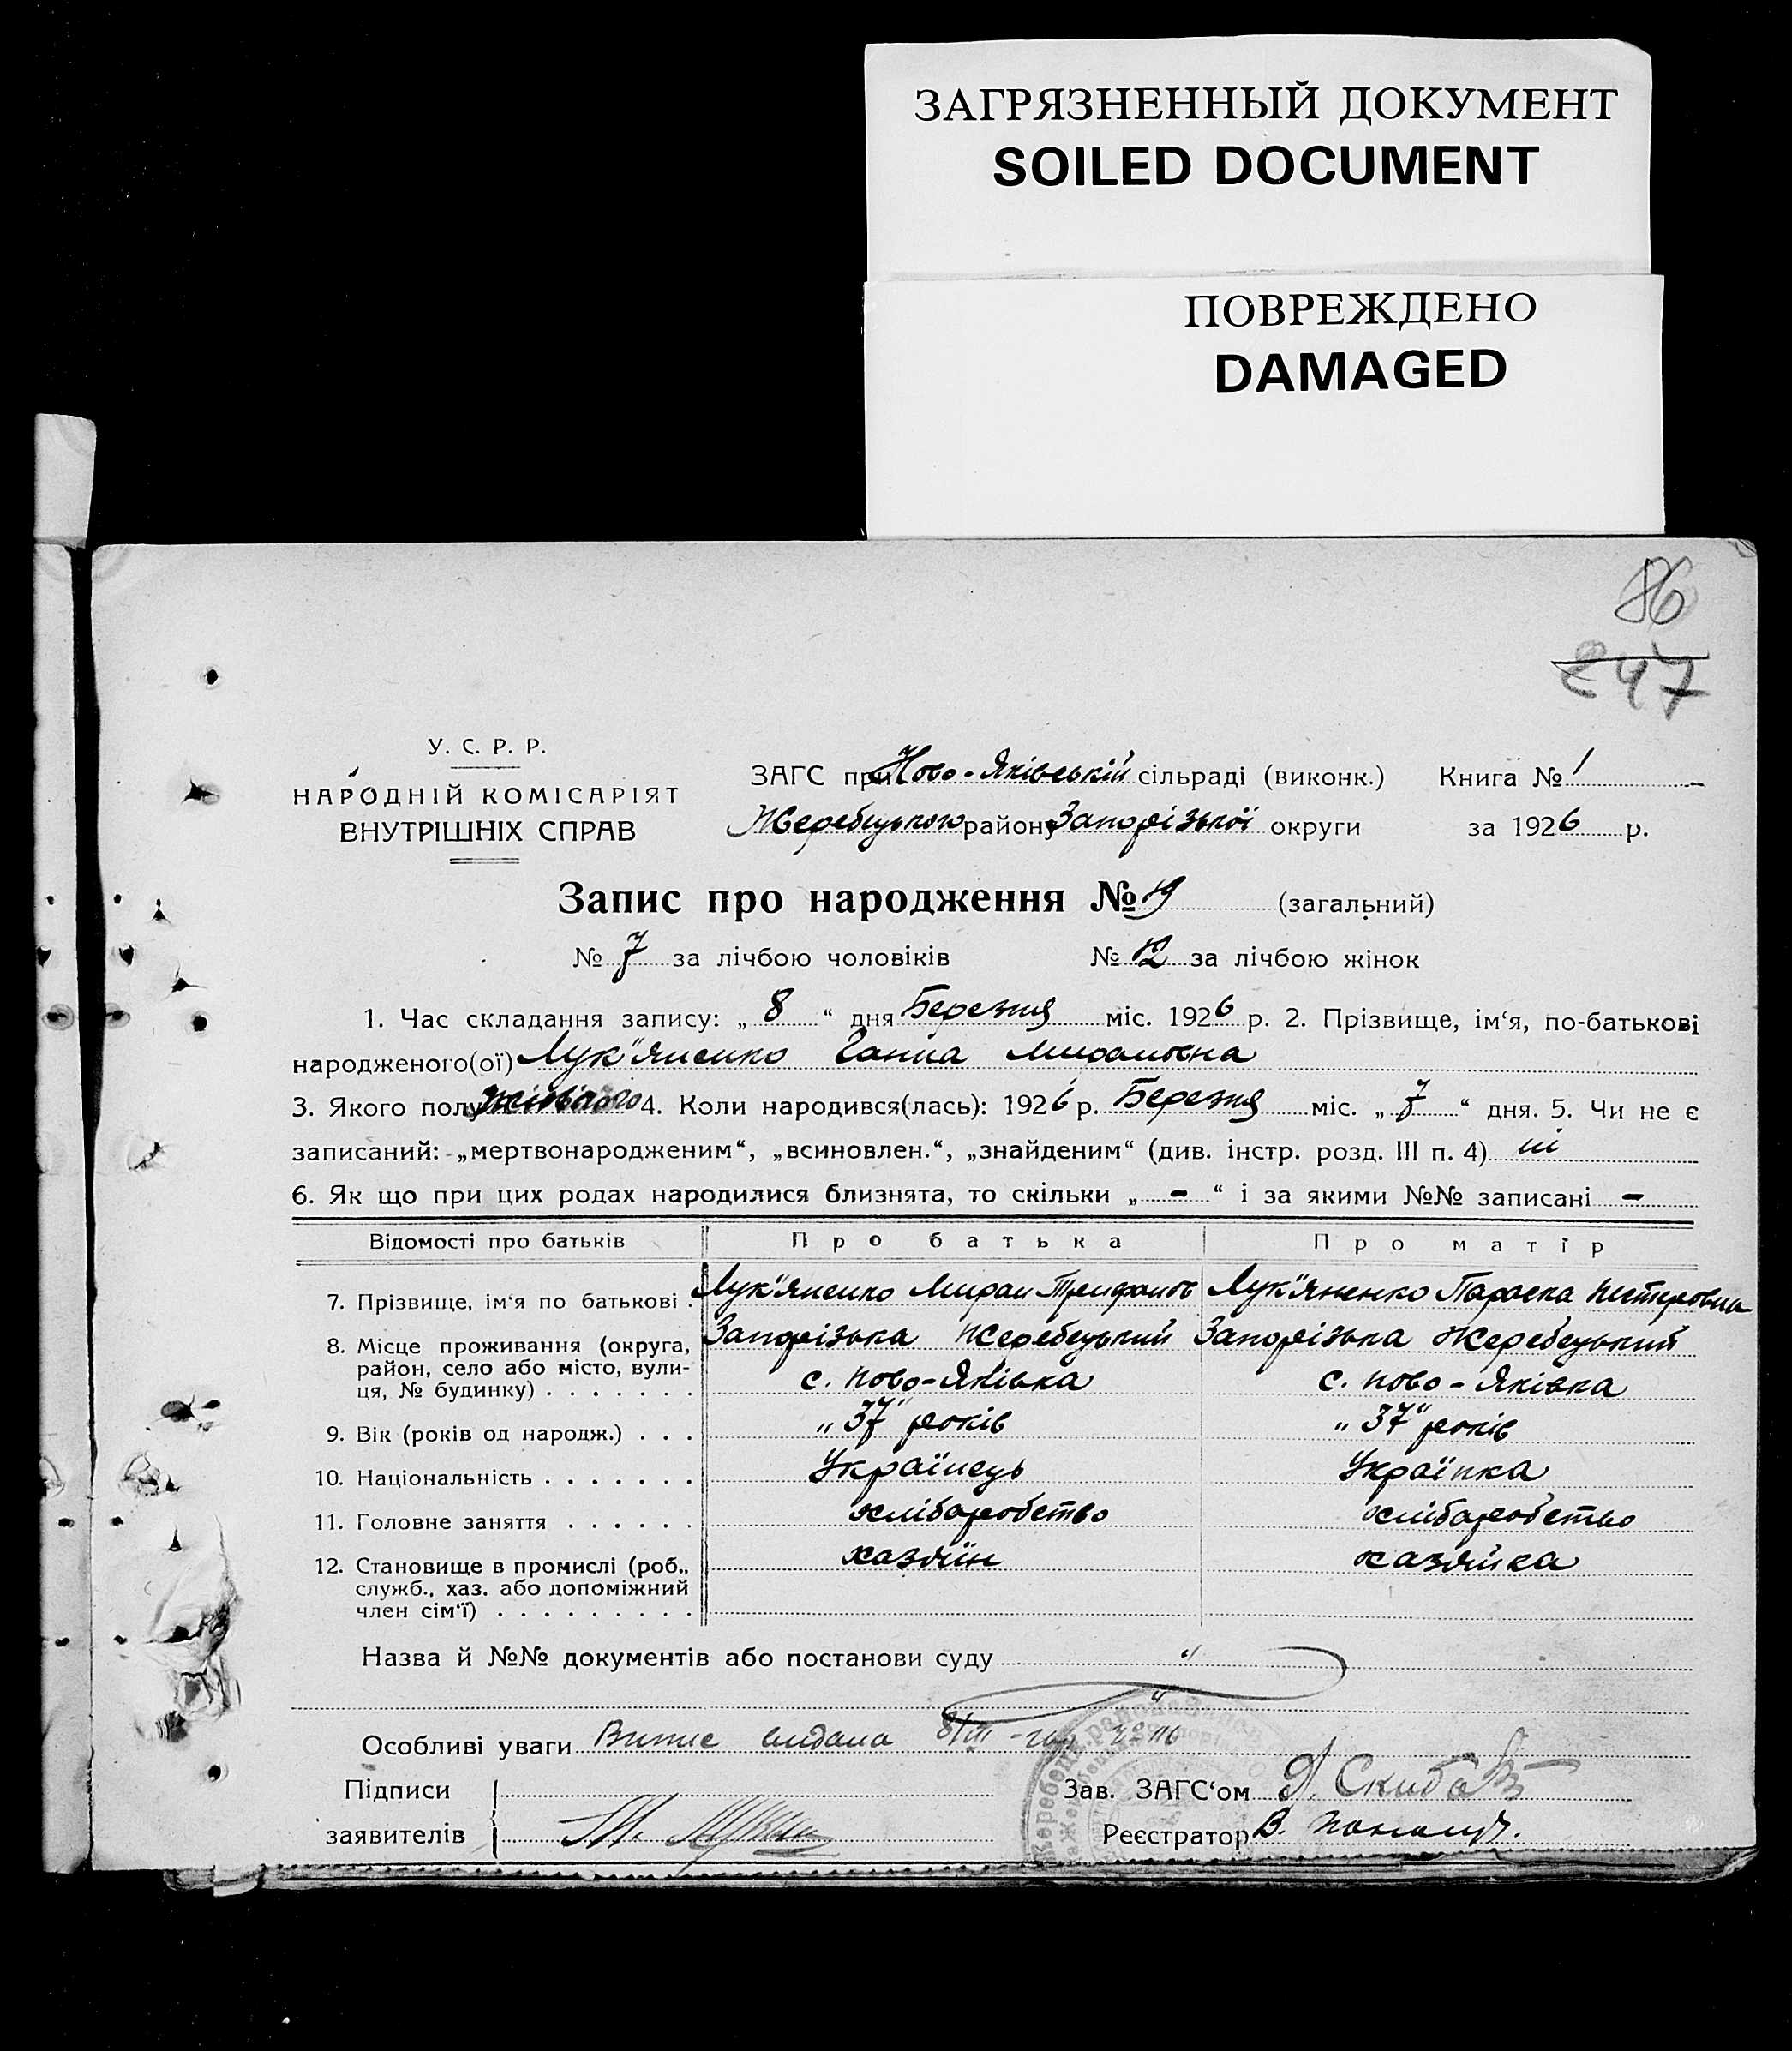 ЗАГРЯЗНЕННЫЙ ДОКУМЕНТ
SOILED DOCUMENT
ПОВРЕЖДЕНО
DAMAGED
86
247
У. С. Р. Р.
НАРОДНІЙ КОМІСАРІЯТ
ВНУТРІШНІХ СПРАВ
ЗАГС при Ново-Яківській сільраді (виконк.) Книга № 1
Жеребецького району Запорізької округи за 1926 р.
Запис про народження № 19 (загальний)
№ 7 за лічбою чоловіків № 12 за лічбою жінок
1. Час складання запису: „ 8 “ дня Березня міс. 1926 р. 2. Прізвище, ім‘я, по-батькові
народженого(ої) Лук"яненко Ганна Мироновна
3. Якого полу жіночого 4. Коли народився(лась): 1926 р. Березня міс. „ 7 “ дня. 5. Чи не є
записаний: „мертвонародженим“, „всиновлен.“, „знайденим“ (див. інстр. розд. III п. 4) ні
6. Як що при цих родах народилися близнята, то скільки „ - “ і за якими №№ записані -
Відомості про батьків Про батька Про матір
7. Прізвище, ім‘я по батькові . Лук"яненко Мирон Трифонов Лук"яненко Параска Нестеровна
8. Місце проживання (округа, Запорізька Жеребецький Запорізька Жеребецький
район, село або місто, вули-
ця, № будинку) . . . . . . . с. Ново-Яківка с. Ново-Яківка
9. Вік (років од народж.) . . . „37" років „37" років
10. Національність . . . . . . . Українець Українка
11. Головне заняття . . . . . . хліборобство хліборобство
12. Становище в промислі (роб., хазяїн хазяйка
служб., хаз. або допоміжний
член сім‘ї) . . . . . . . . .
Назва й №№ документів або постанови суду "
"
Особливі уваги Витис видана 8/III
Підписи
заявителів
Зав. ЗАГС‘ом Скиба
Реєстратор В.